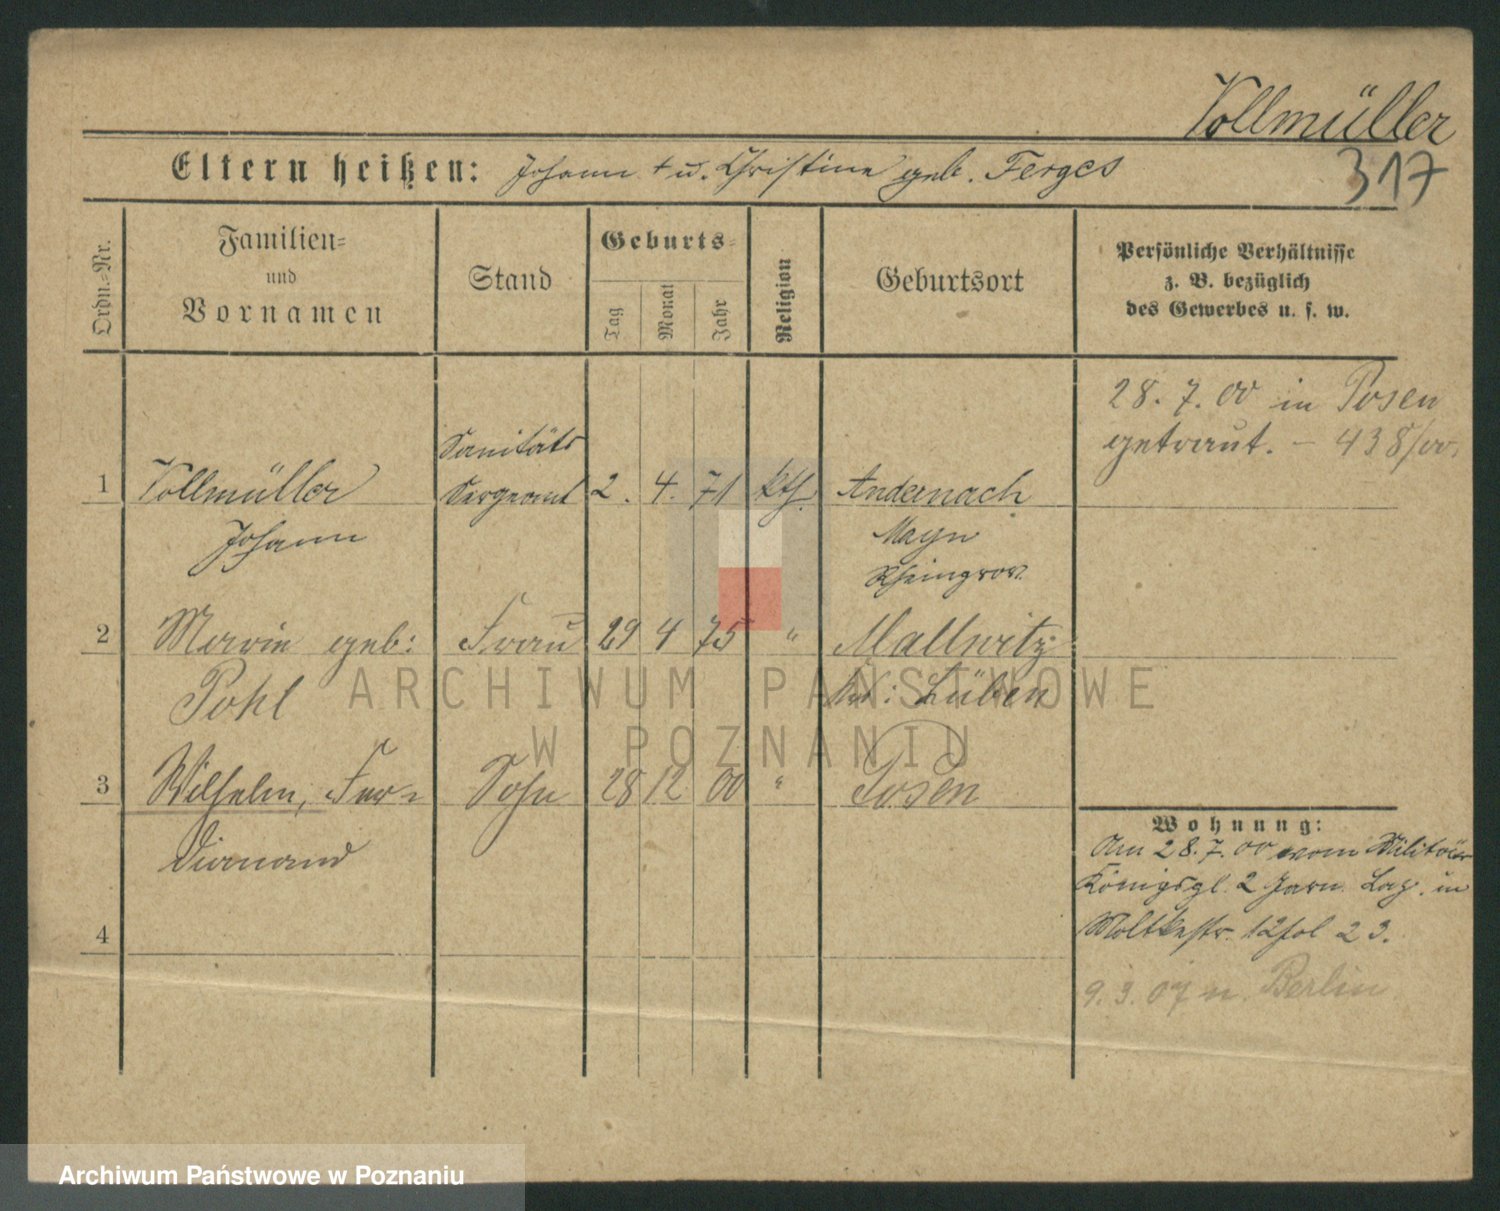 Vollmüller
317
Eltern heißen: Johann † u. Christine geb. Ferges
Ordn.-Nr.
Familien-
und
Vornamen
Stand
Geburts-
Tag
Monat
Jahr
Religion
Geburtsort
Persönliche Verhältnisse
z. B. bezüglich
des Gewerbes u. s. w.
28. 7. 00 in Posen
getraut. – 438/00.
Sanitäts
1 Vollmüller Sergeant 2. 4. 71 kth. Andernach
Johann Mayn
Rheinprov.
2 Marie geb: Frau 29 4 75 " Mallwitz
Pohl Kr: Lüben
3 Wilhelm, Fer= Sohn 28 12 00 " Posen
dinand
4
Wohnung:
Am 28. 7. 00 vom Militär
Königsgl. 2 Garn. Laz. in
Moltkestr. 12 23.
9. 3. 07 n. Berlin
ARCHIWUM PAŃSTWOWE
W POZNANIU
Archiwum Państwowe w Poznaniu